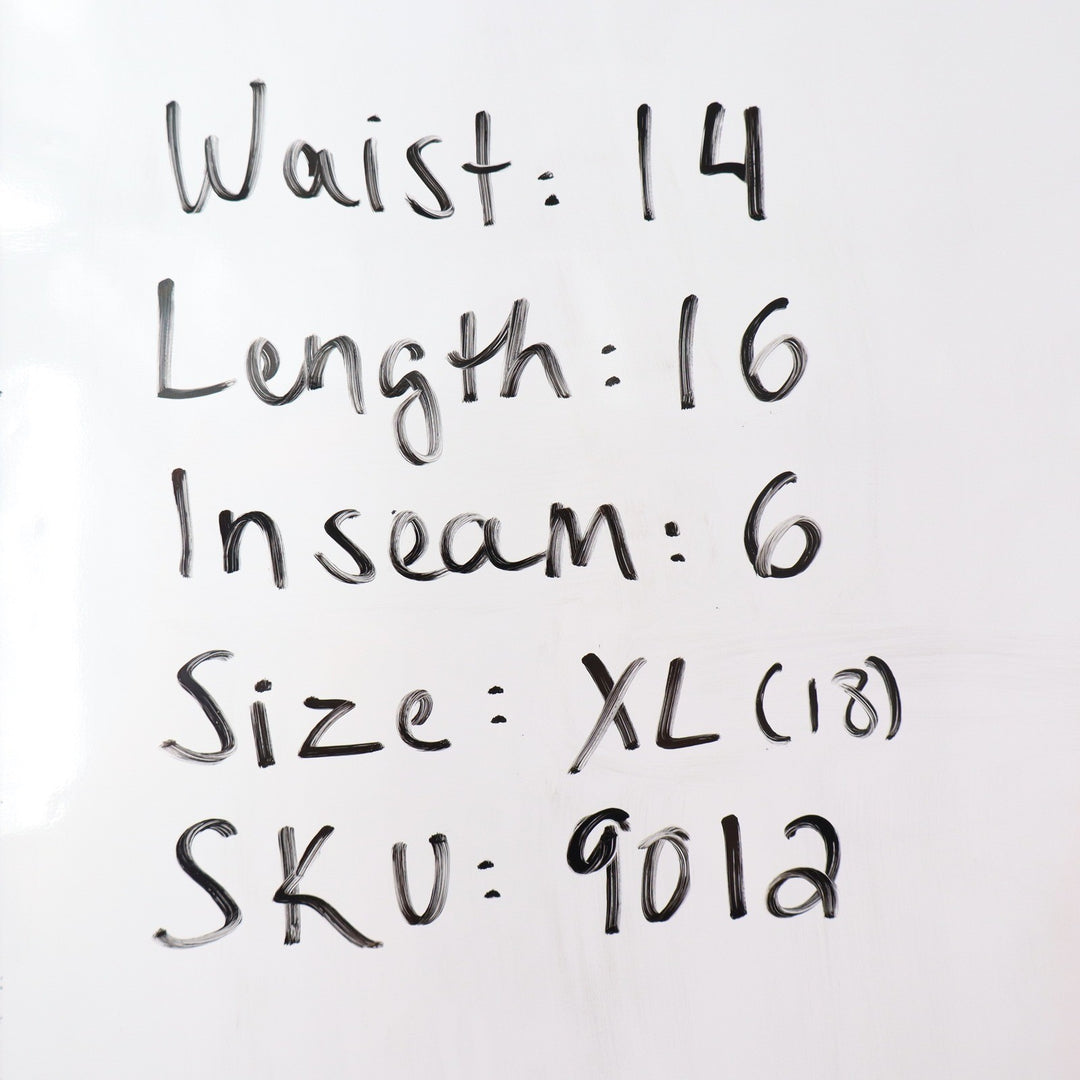 Waist: 14
Length: 16
Inseam: 6
Size: XL (18)
SKU: 9012